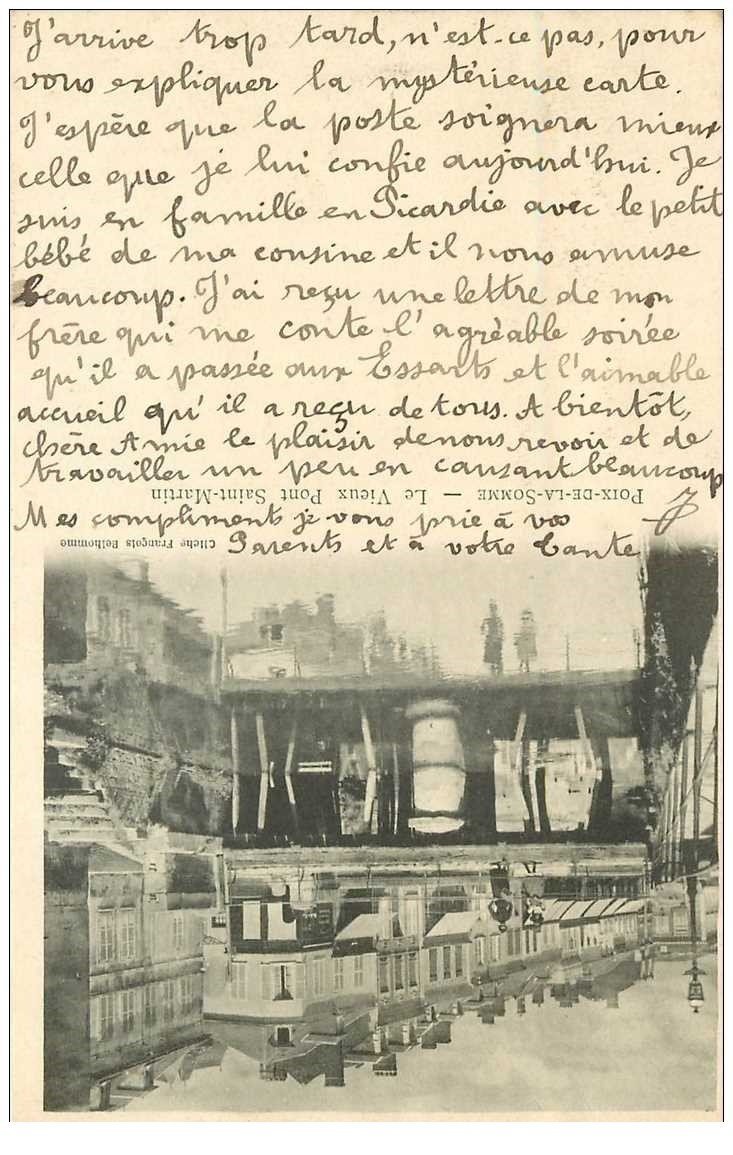 J'arrive trop tard, n'est-ce pas, pour
vous expliquer la mystérieuse carte.
J'espère que la poste soignera mieux
celle que je lui confie aujourd'hui. Je
suis en famille en Picardie avec le petit
bébé de ma cousine et il nous amuse
beaucoup. J'ai reçu une lettre de mon
frère qui me conte l'agréable soirée
qu'il a passée aux Essarts et l'aimable
accueil qu'il a reçu de tous. A bientôt,
chère Amie le plaisir de nous revoir et de
travailler un peu en causant beaucoup
POIX-DE-LA-SOMME — Le Vieux Pont Saint-Martin
Mes compliments je vous prie à vos
Parents et à votre Tante
Cliché François Belhomme